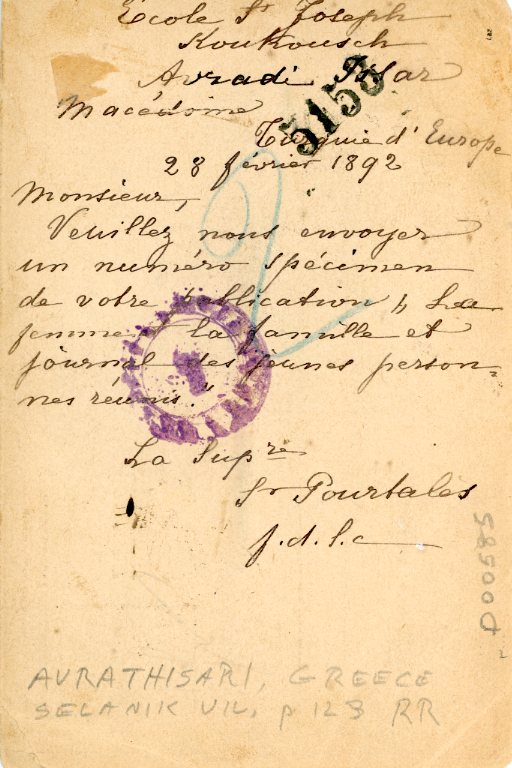 École St Joseph
Koukousch
Avradi Issar
Macédoine
Turquie d'Europe
5153
28 février 1892
Monsieur,
Veuillez nous envoyer
un numéro spécimen
de votre publication "La
femme et la famille et
journal des jeunes person=
nes réunis."
La Supre
Sr Pourtalès
f.d.l.c
D00585
AVRATHISARI, GREECE
SELANIK VIL, p 128 RR